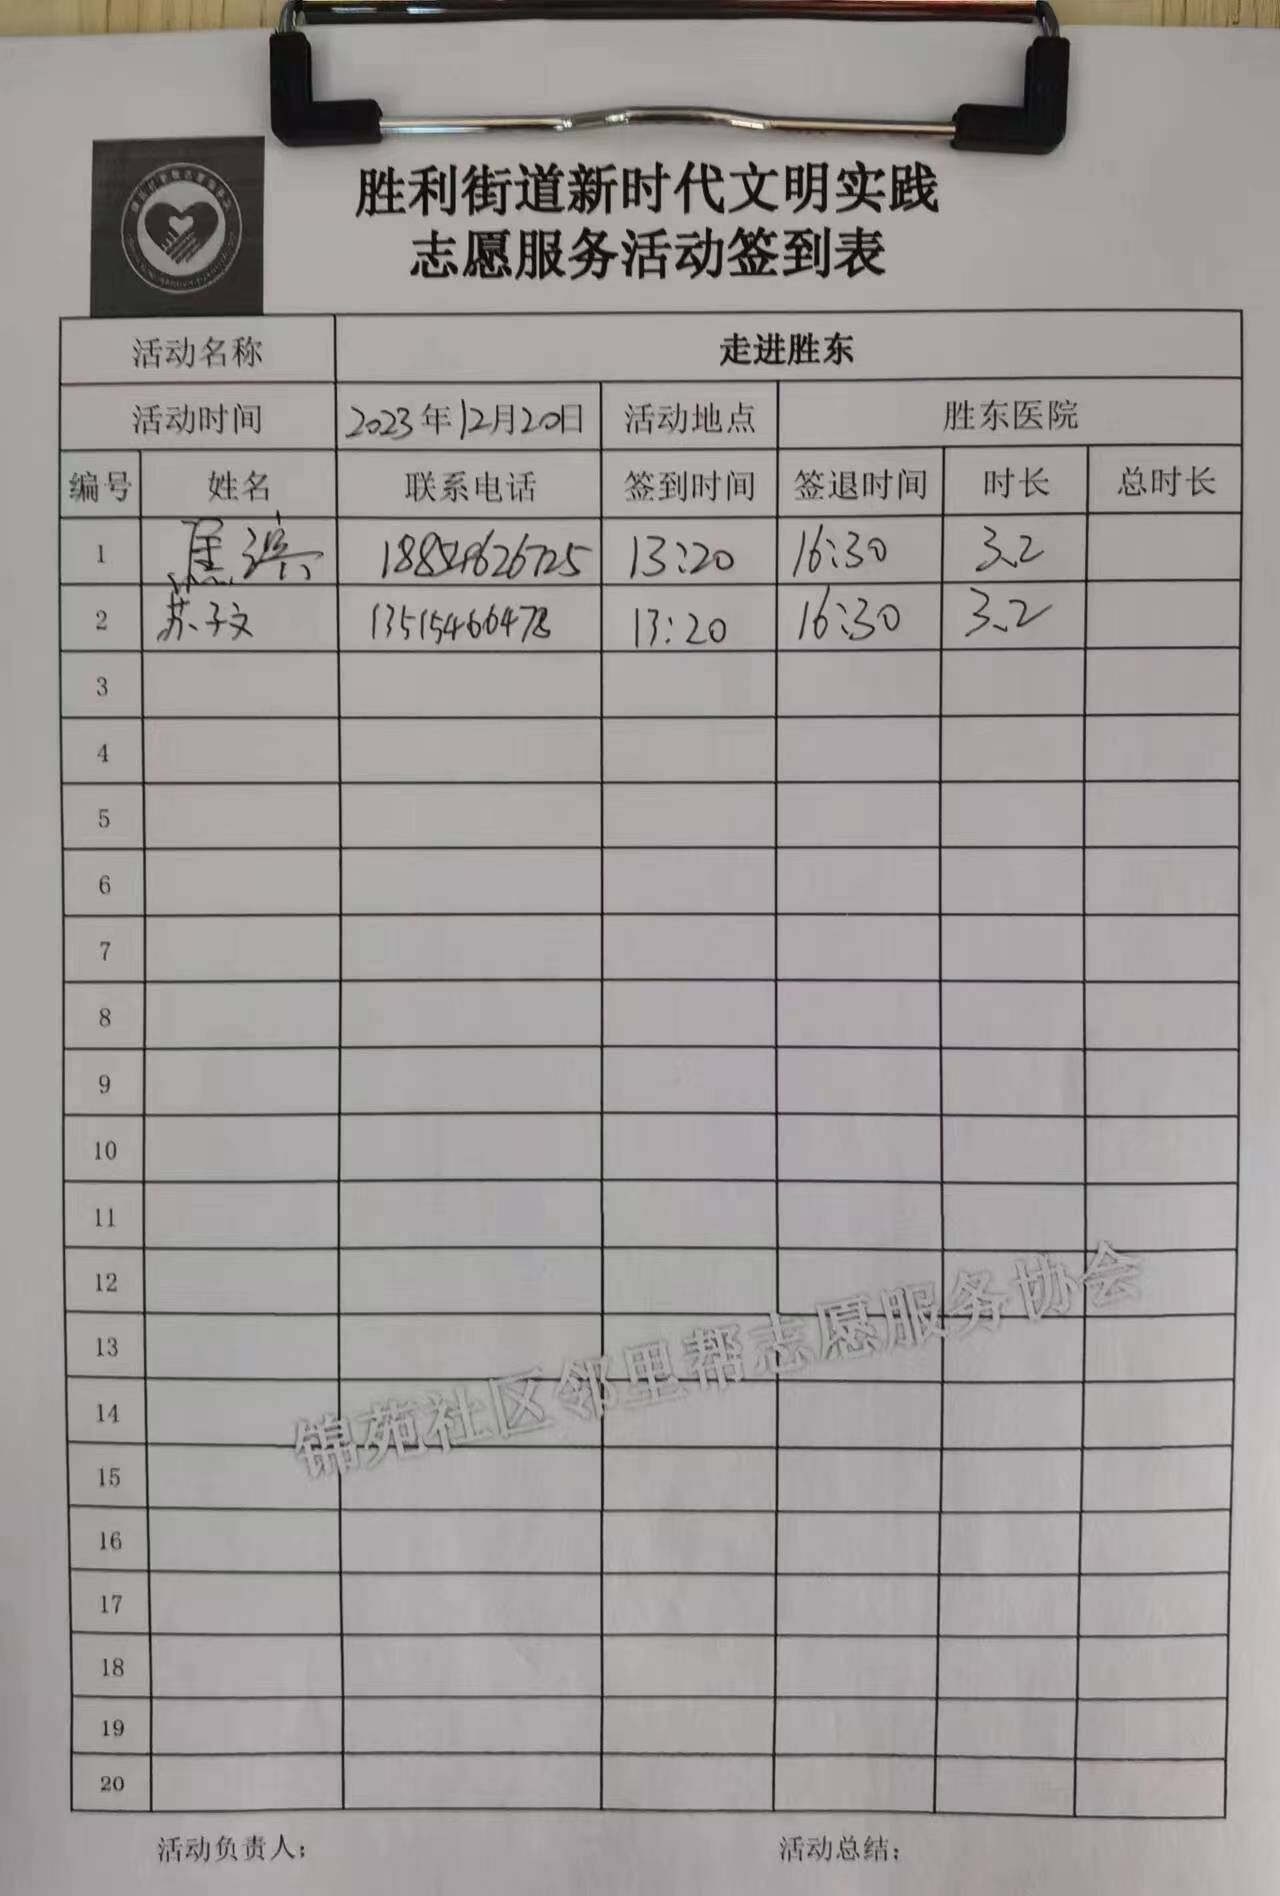 胜利街道新时代文明实践
志愿服务活动签到表
活动名称 走进胜东
活动时间 2023年12月20日 活动地点 胜东医院
编号 姓名 联系电话 签到时间 签退时间 时长 总时长
1 滨 13:20 16:30 3.2
2 苏子文 13515466478 13:20 16:30 3.2
3
4
5
6
7
8
9
10
11
12
13
14
15
16
17
18
19
20
锦苑社区邻里帮志愿服务协会
活动负责人: 活动总结: